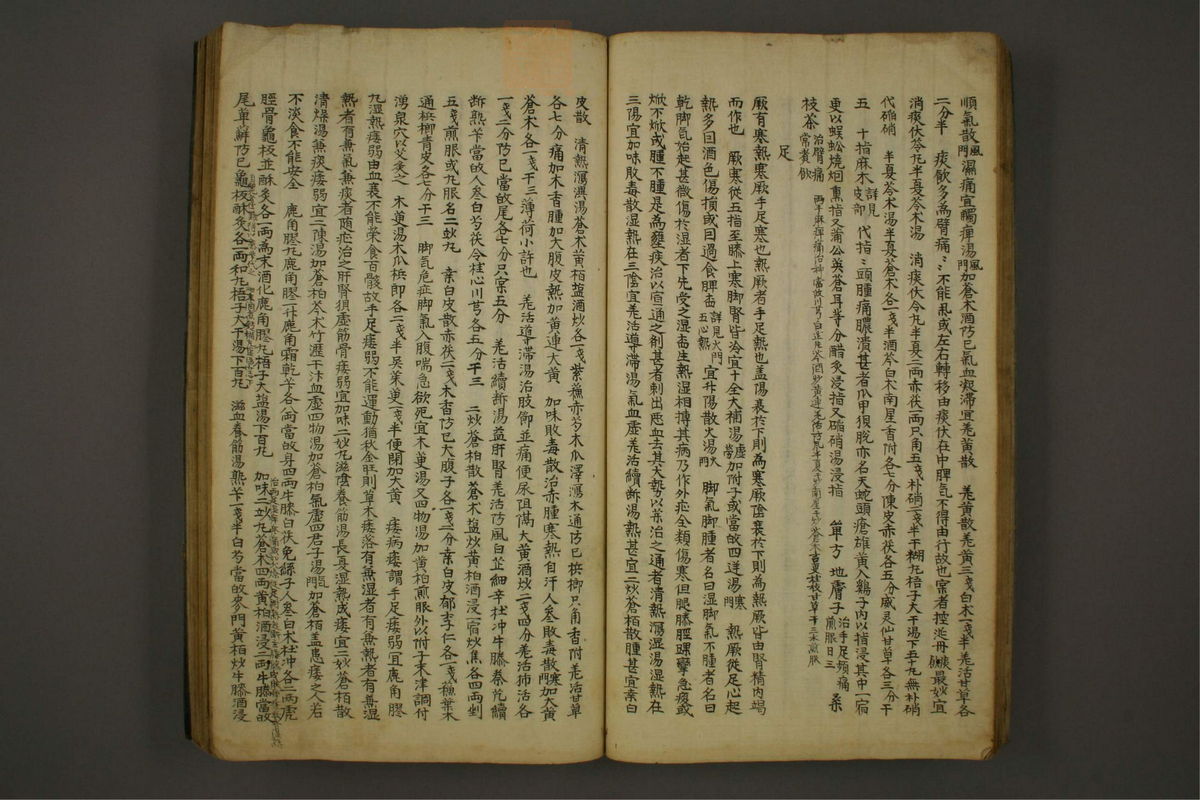 順氣散風門濕痛宜蠲痺湯風門加蒼木酒防已氣血凝滯宜羌黄散 羌黄散羌黄三戔白木一戔半羌活甘草各
二分半 痰飮多為臂痛〻不能亂或左右轉移由痰伏在中脾氣不得由行故也宲者控涎丹痰飮最妙宜
消痰伏苓丸半夏苓木湯 消痰伏令丸半夏二兩赤伏一兩只角五戔朴硝一戔半干糊丸梧子大干湯下五十丸無朴硝
代硭硝 半夏苓木湯半夏蒼木各一戔半酒芩白木南星香附各七分陳皮赤茯各五分威灵仙甘草各三分干
五 十指麻木詳見皮部 代指〻頭腫痛膿潰甚者爪甲損脫亦名天蛇頭瘡雄黄入鷄子内以指浸其中一宿
更以蜈蚣燒烟熏指又蒲公英蒼耳等分醋灸浸指又硭硝湯浸指 單方 地膚子治手足煩痛煎服日三 桑
枝茶治臂痛常煮飮
足
厥有寒熱寒厥手足寒也熱厥者手足熱也盖陽衰於下則為寒厥陰衰於下則為熱厥皆由腎精内竭
而作也 厥寒從五指至膝上寒脚腎皆冷宜十全大補湯虛勞加附子或當故四逆湯寒門 熱厥從足心起
熱多回酒色傷損或回過食脾熱詳見火門五心熱宜升陽散火湯火門 脚氣脚腫者名曰湿脚氣不腫者名曰
乾脚氣始起甚微傷於湿者下先受之湿生熱湿相摶其病乃作外疟全類傷寒但腿膝脛踝攣急痠或
焮不焮或腫不腫是為壅疾治以宣通之剤甚者刺出惡血去其大勢以薬治之通者清熱瀉湿湯湿熱在
三陽宜加味敗毒散湿熱在三陰宜羌活導滯湯氣血虛羌活續断湯熱甚宜二炒蒼栢散腫甚宜桒白
皮散 清熱瀉湿湯蒼木黄栢塩酒炒各一戔紫蘓赤芍木瓜澤瀉木通防已梹榔只角香附羌活甘草
各七分痛加木香腫加大腹皮熱加黄連大黄 加味敗毒散治赤腫寒熱自汗人参敗毒散寒門加大黄
蒼木各一戔干三薄荷小許也 羌活導滯湯治肢節並痛便尿阻鬲大黄酒炒二戔四分羌活独活各
一戔二分防已當故尾各七分只宲五分 羌活續断湯益肝腎羌活防風白芷細辛杜冲牛膝秦艽續
断熟芐當故人参白芍茯令桂心川芎各五分干三 二炒蒼栢散蒼木塩炒黄栢酒浸一宿炒焦各四両剉
五戔煎服或丸服名二妙丸 桒白皮散赤茯二戔木香防已大腹子各一戔二分桒白皮郁李仁各一戔蘓葉木
通梹榔青皮各七分干三 脚氣危症脚氣入腹喘急欲死宜木萸湯又四物湯加黄栢煎服外以附子末津調付
湧泉穴以艾灸之 木萸湯木爪梹即各二戔半吳茱萸一戔半便閉加大黄 痿病痿謂手足痿弱冝鹿角膠
丸湿熱痿弱由血衰不能榮食百骸故手足痿弱不能運動猶秋金旺則草木痿落有無湿者有無熱者有無湿
熱者有無氣無痰者随疟治之肝腎損虛筋骨痿弱宜加味二妙丸滋陰養筋湯長夏湿熱成痿宜二妙蒼栢散
清燥湯無痰痿弱宜二陳湯加蒼栢今木竹瀝干汁血虛四物湯加蒼栢氣虛四君子湯氣門加蒼栢盖患痿之人若
不淡食不能安全 鹿角膠丸鹿角膠一斤鹿角霜乾芐各八両當故身四両牛膝白伏免絲子人参白木杜冲各二両虎
脛骨龜板並酥灸各一両為末酒化鹿角膠丸梧子大塩湯下百丸 加味二妙丸蒼木四両黄栢酒浸二両牛膝當故
尾草薢防已龜板酥灸各一両和丸梧子大干湯下百丸 滋血養筋湯熟芐一戔半白芍當故麥門黄栢炒牛膝酒浸